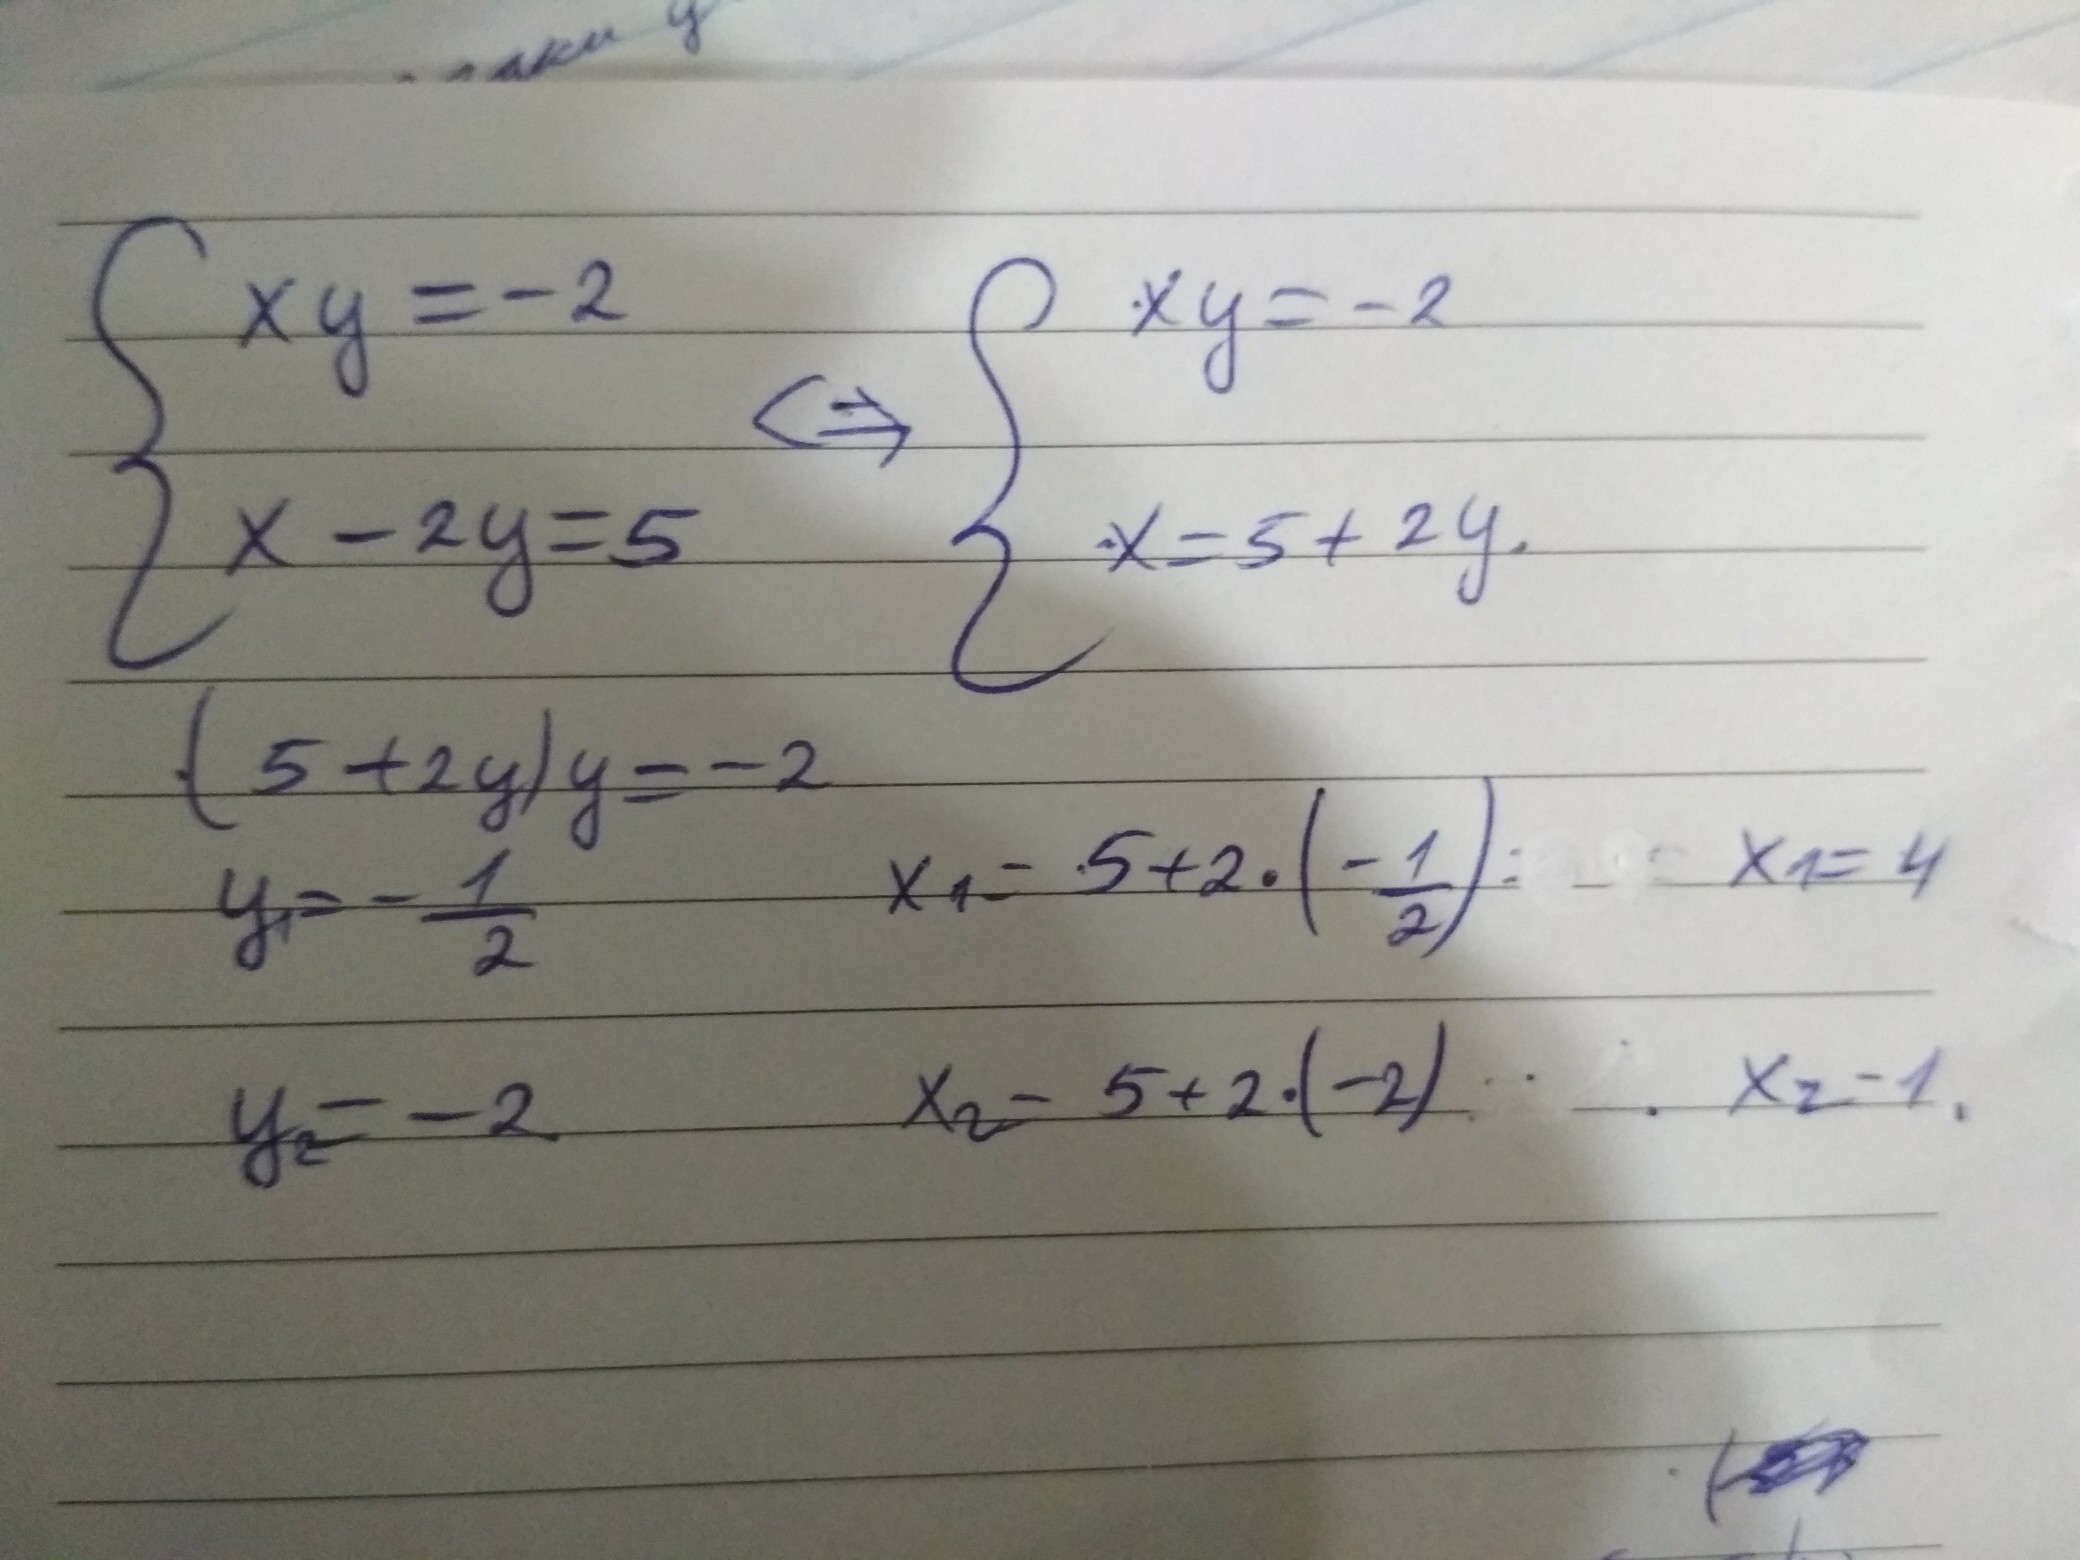 у
xy = -2 <=> xy = -2
x - 2y = 5 x = 5 + 2y.
(5 + 2y)y = -2
y₁ = -1/2 x₁ = 5 + 2·(-1/2) = x₁ = 4
y₂ = -2 x₂ = 5 + 2·(-2) x₂ = 1.